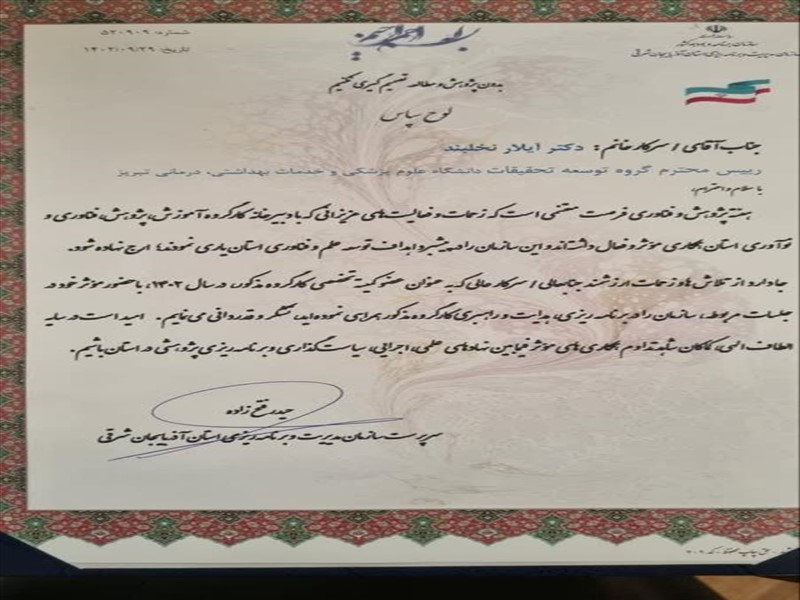 بسم الله الرحمن الرحیم
شماره: ۵۲۰۹۰۹
تاریخ: ۱۴۰۲/۰۹/۲۹
سازمان مدیریت و برنامه ریزی استان آذربایجان شرقی
بدون پژوهش و مطالعه تصمیم گیری نکنیم
لوح سپاس
جناب آقای / سرکار خانم: دکتر آیلار نخلبند
رییس محترم گروه توسعه تحقیقات دانشگاه علوم پزشکی و خدمات بهداشتی، درمانی تبریز
با سلام و احترام،
هفته پژوهش و فناوری فرصت مغتنمی است که زحمات و فعالیت‌های عزیزانی که با دبیرخانه کارگروه آموزش، پژوهش، فناوری و
نوآوری استان همکاری مؤثر و فعال داشته‌اند و این سازمان را در پیشبرد اهداف توسعه علم و فناوری استان یاری نمودند، ارج نهاده شود.
جا دارد از تلاش‌ها و زحمات ارزشمند جنابعالی / سرکار عالی که به عنوان عضو کمیته تخصصی کارگروه مذکور، در سال ۱۴۰۲، با حضور مؤثر خود در
جلسات مربوطه، سازمان را در برنامه ریزی، هدایت و راهبری کارگروه مذکور همراهی نموده‌اید، تشکر و قدردانی می‌نمایم. امید است در سایه
الطاف الهی، کماکان شاهد تداوم همکاری‌های مؤثر فیمابین نهادهای علمی، اجرایی، سیاست گذاری و برنامه ریزی پژوهشی در استان باشیم.
حیدر فتح زاده
سرپرست سازمان مدیریت و برنامه ریزی استان آذربایجان شرقی